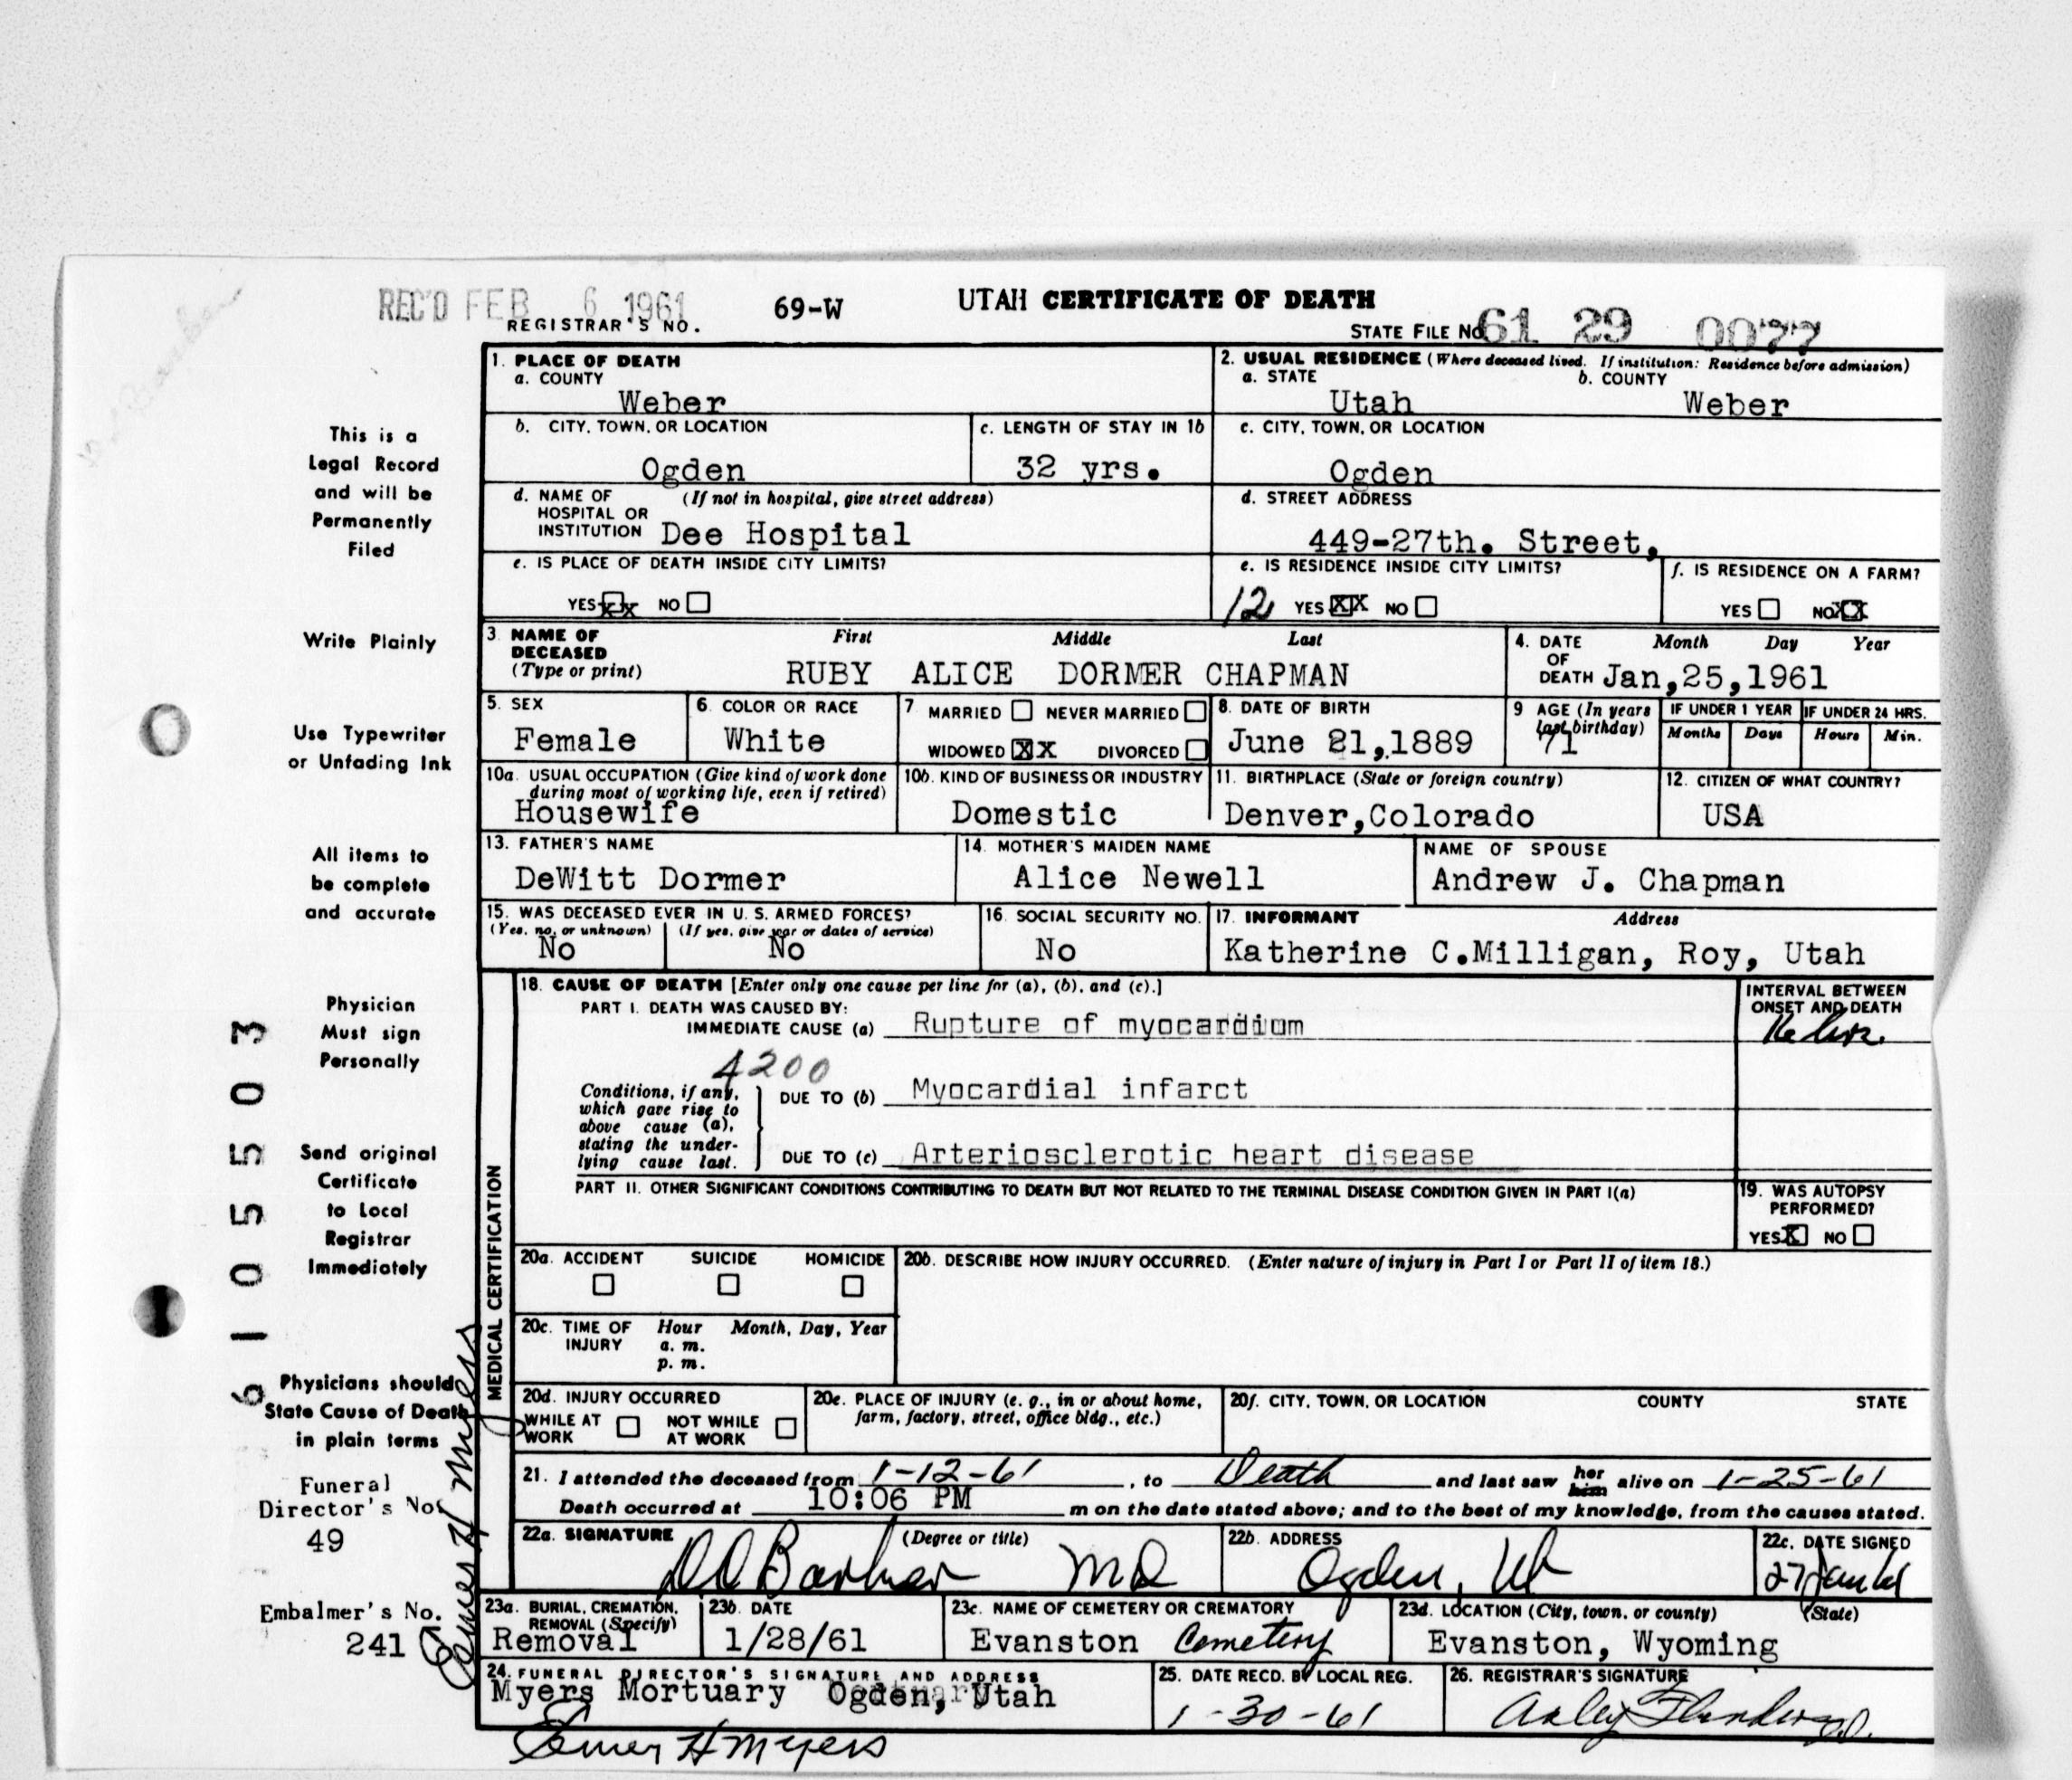 REC'D FEB 6 1961
REGISTRAR'S NO. 69-W
UTAH CERTIFICATE OF DEATH
STATE FILE NO 61 29 0077
1. PLACE OF DEATH
a. COUNTY
Weber
2. USUAL RESIDENCE (Where deceased lived. If institution: Residence before admission)
a. STATE b. COUNTY
Utah Weber
b. CITY, TOWN, OR LOCATION
Ogden
c. LENGTH OF STAY IN 1b
32 yrs.
c. CITY, TOWN, OR LOCATION
Ogden
d. NAME OF (If not in hospital, give street address)
HOSPITAL OR
INSTITUTION Dee Hospital
d. STREET ADDRESS
449-27th. Street,
e. IS PLACE OF DEATH INSIDE CITY LIMITS?
YES XX NO
e. IS RESIDENCE INSIDE CITY LIMITS?
12 YES XX NO
f. IS RESIDENCE ON A FARM?
YES NO XX
3. NAME OF DECEASED
(Type or print)
First Middle Last
RUBY ALICE DORMER CHAPMAN
4. DATE OF DEATH
Month Day Year
Jan,25,1961
5. SEX
Female
6. COLOR OR RACE
White
7 MARRIED NEVER MARRIED
WIDOWED XX DIVORCED
8. DATE OF BIRTH
June 21,1889
9 AGE (In years last birthday)
71
IF UNDER 1 YEAR
Months Days
IF UNDER 24 HRS.
Hours Min.
10a. USUAL OCCUPATION (Give kind of work done
during most of working life, even if retired)
Housewife
10b. KIND OF BUSINESS OR INDUSTRY
Domestic
11. BIRTHPLACE (State or foreign country)
Denver,Colorado
12. CITIZEN OF WHAT COUNTRY?
USA
13. FATHER'S NAME
DeWitt Dormer
14. MOTHER'S MAIDEN NAME
Alice Newell
NAME OF SPOUSE
Andrew J. Chapman
15. WAS DECEASED EVER IN U. S. ARMED FORCES?
(Yes, no, or unknown) (If yes, give war or dates of service)
No No
16. SOCIAL SECURITY NO.
No
17. INFORMANT Address
Katherine C.Milligan, Roy, Utah
MEDICAL CERTIFICATION
18. CAUSE OF DEATH [Enter only one cause per line for (a), (b), and (c).]
PART I. DEATH WAS CAUSED BY:
IMMEDIATE CAUSE (a) Rupture of myocardium
INTERVAL BETWEEN
ONSET AND DEATH
4200
Conditions, if any,
which gave rise to
above cause (a),
stating the under-
lying cause last.
DUE TO (b) Myocardial infarct
DUE TO (c) Arteriosclerotic heart disease
PART II. OTHER SIGNIFICANT CONDITIONS CONTRIBUTING TO DEATH BUT NOT RELATED TO THE TERMINAL DISEASE CONDITION GIVEN IN PART I(a)
19. WAS AUTOPSY
PERFORMED?
YES X NO
20a. ACCIDENT SUICIDE HOMICIDE
20b. DESCRIBE HOW INJURY OCCURRED. (Enter nature of injury in Part I or Part II of item 18.)
20c. TIME OF INJURY
Hour Month, Day, Year
a. m.
p. m.
20d. INJURY OCCURRED
WHILE AT WORK NOT WHILE AT WORK
20e. PLACE OF INJURY (e. g., in or about home,
farm, factory, street, office bldg., etc.)
20f. CITY, TOWN, OR LOCATION COUNTY STATE
21. I attended the deceased from 1-12-61, to Death and last saw her him alive on 1-25-61
Death occurred at 10:06 PM m on the date stated above; and to the best of my knowledge, from the causes stated.
22a. SIGNATURE (Degree or title)
MD
22b. ADDRESS
Ogden, Ut
22c. DATE SIGNED
27 Jan 61
23a. BURIAL, CREMATION,
REMOVAL (Specify)
Removal
23b. DATE
1/28/61
23c. NAME OF CEMETERY OR CREMATORY
Evanston Cemetery
23d. LOCATION (City, town, or county) (State)
Evanston, Wyoming
24. FUNERAL DIRECTOR'S SIGNATURE AND ADDRESS
Myers Mortuary Ogden, Utah
25. DATE RECD. BY LOCAL REG.
1-30-61
26. REGISTRAR'S SIGNATURE
H Myers
This is a
Legal Record
and will be
Permanently
Filed
Write Plainly
Use Typewriter
or Unfading Ink
All items to
be complete
and accurate
Physician
Must sign
Personally
Send original
Certificate
to Local
Registrar
Immediately
Physicians should
State Cause of Death
in plain terms
Funeral
Director's No.
49
Embalmer's No.
241
H Myers
6105503